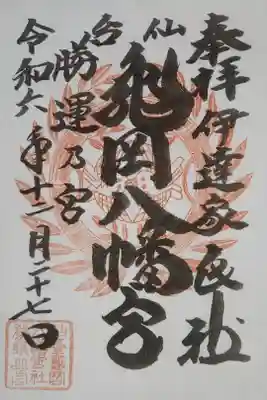 奉拝 伊達家氏社
仙台
亀岡八幡宮
勝運乃宮
令和六年十二月二十七日